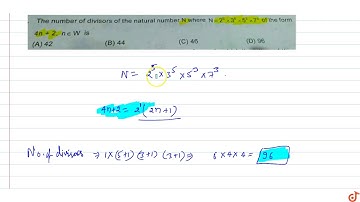 The number of divisors of the natural number N where N = 2⁵ × 3⁵ × 5³ × 7³ of the form
4n + 2, n ∈ W is
(A) 42 (B) 44 (C) 46 (D) 96
N = 2⁵ × 3⁵ × 5³ × 7³ .
4n+2 = 2¹(2n+1)
No. of divisors ⇒ 1×(5+1)(3+1)(3+1) ⇒ 6×4×4 = 96